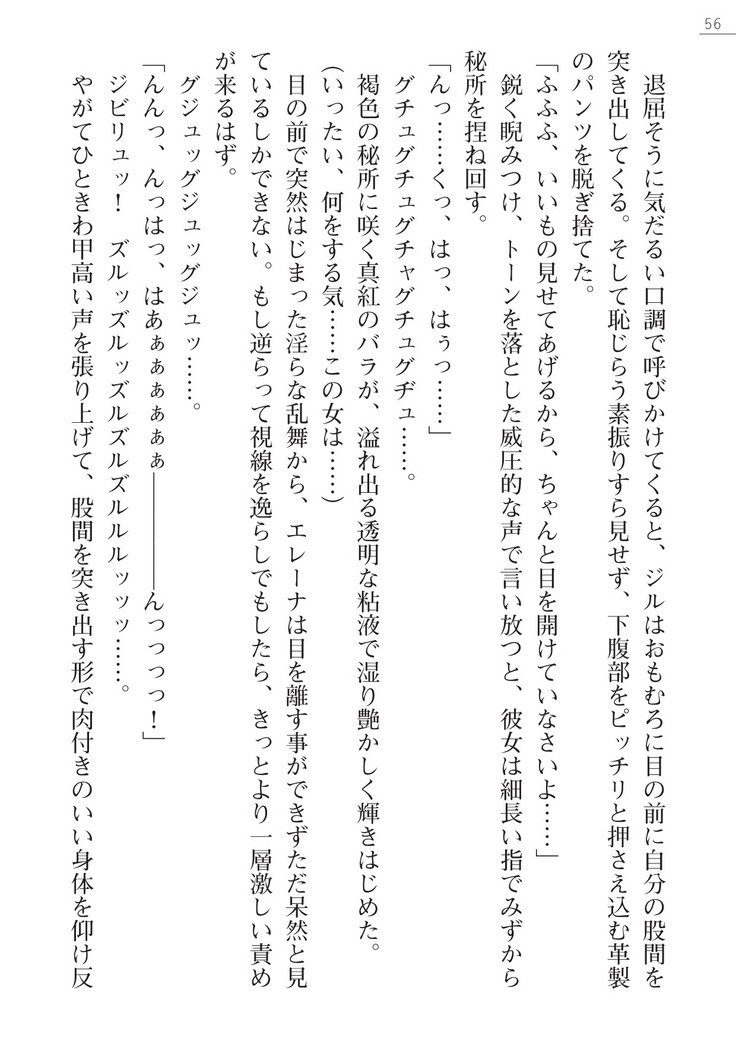 56
　退屈そうに気だるい口調で呼びかけてくると、ジルはおもむろに目の前に自分の股間を
突き出してくる。そして恥じらう素振りすら見せず、下腹部をピッチリと押さえ込む革製
のパンツを脱ぎ捨てた。
「ふふふ、いいもの見せてあげるから、ちゃんと目を開けていなさいよ……」
　鋭く睨みつけ、トーンを落とした威圧的な声で言い放つと、彼女は細長い指でみずから
秘所を捏ね回す。
「んっ……くっ、はっ、はぅっ……」
　グチュグチュグチャグチュグヂュ……。
　褐色の秘所に咲く真紅のバラが、溢れ出る透明な粘液で湿り艶かしく輝きはじめた。
（いったい、何をする気……この女は……）
　目の前で突然はじまった淫らな乱舞から、エレーナは目を離す事ができずただ呆然と見
ているしかできない。もし逆らって視線を逸らしでもしたら、きっとより一層激しい責め
が来るはず。
　グジュッグジュッグジュッ……。
「んんっ、んっはっ、はあぁぁぁぁぁぁ――――んっっっっ！」
　ジビリュッ！　ズルッズルッズルズルズルルルッッッ……。
　やがてひときわ甲高い声を張り上げて、股間を突き出す形で肉付きのいい身体を仰け反